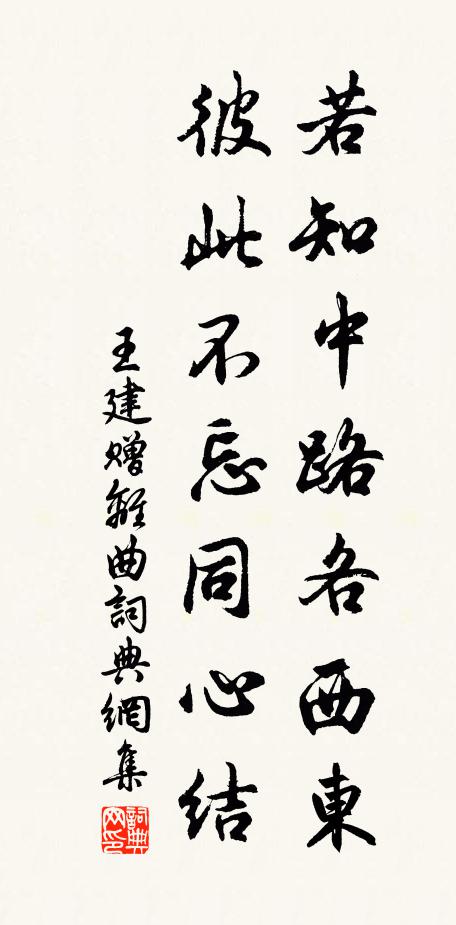 若知中路各西東
彼此不忘同心結
王建贈離曲詞典網集
詞典網印